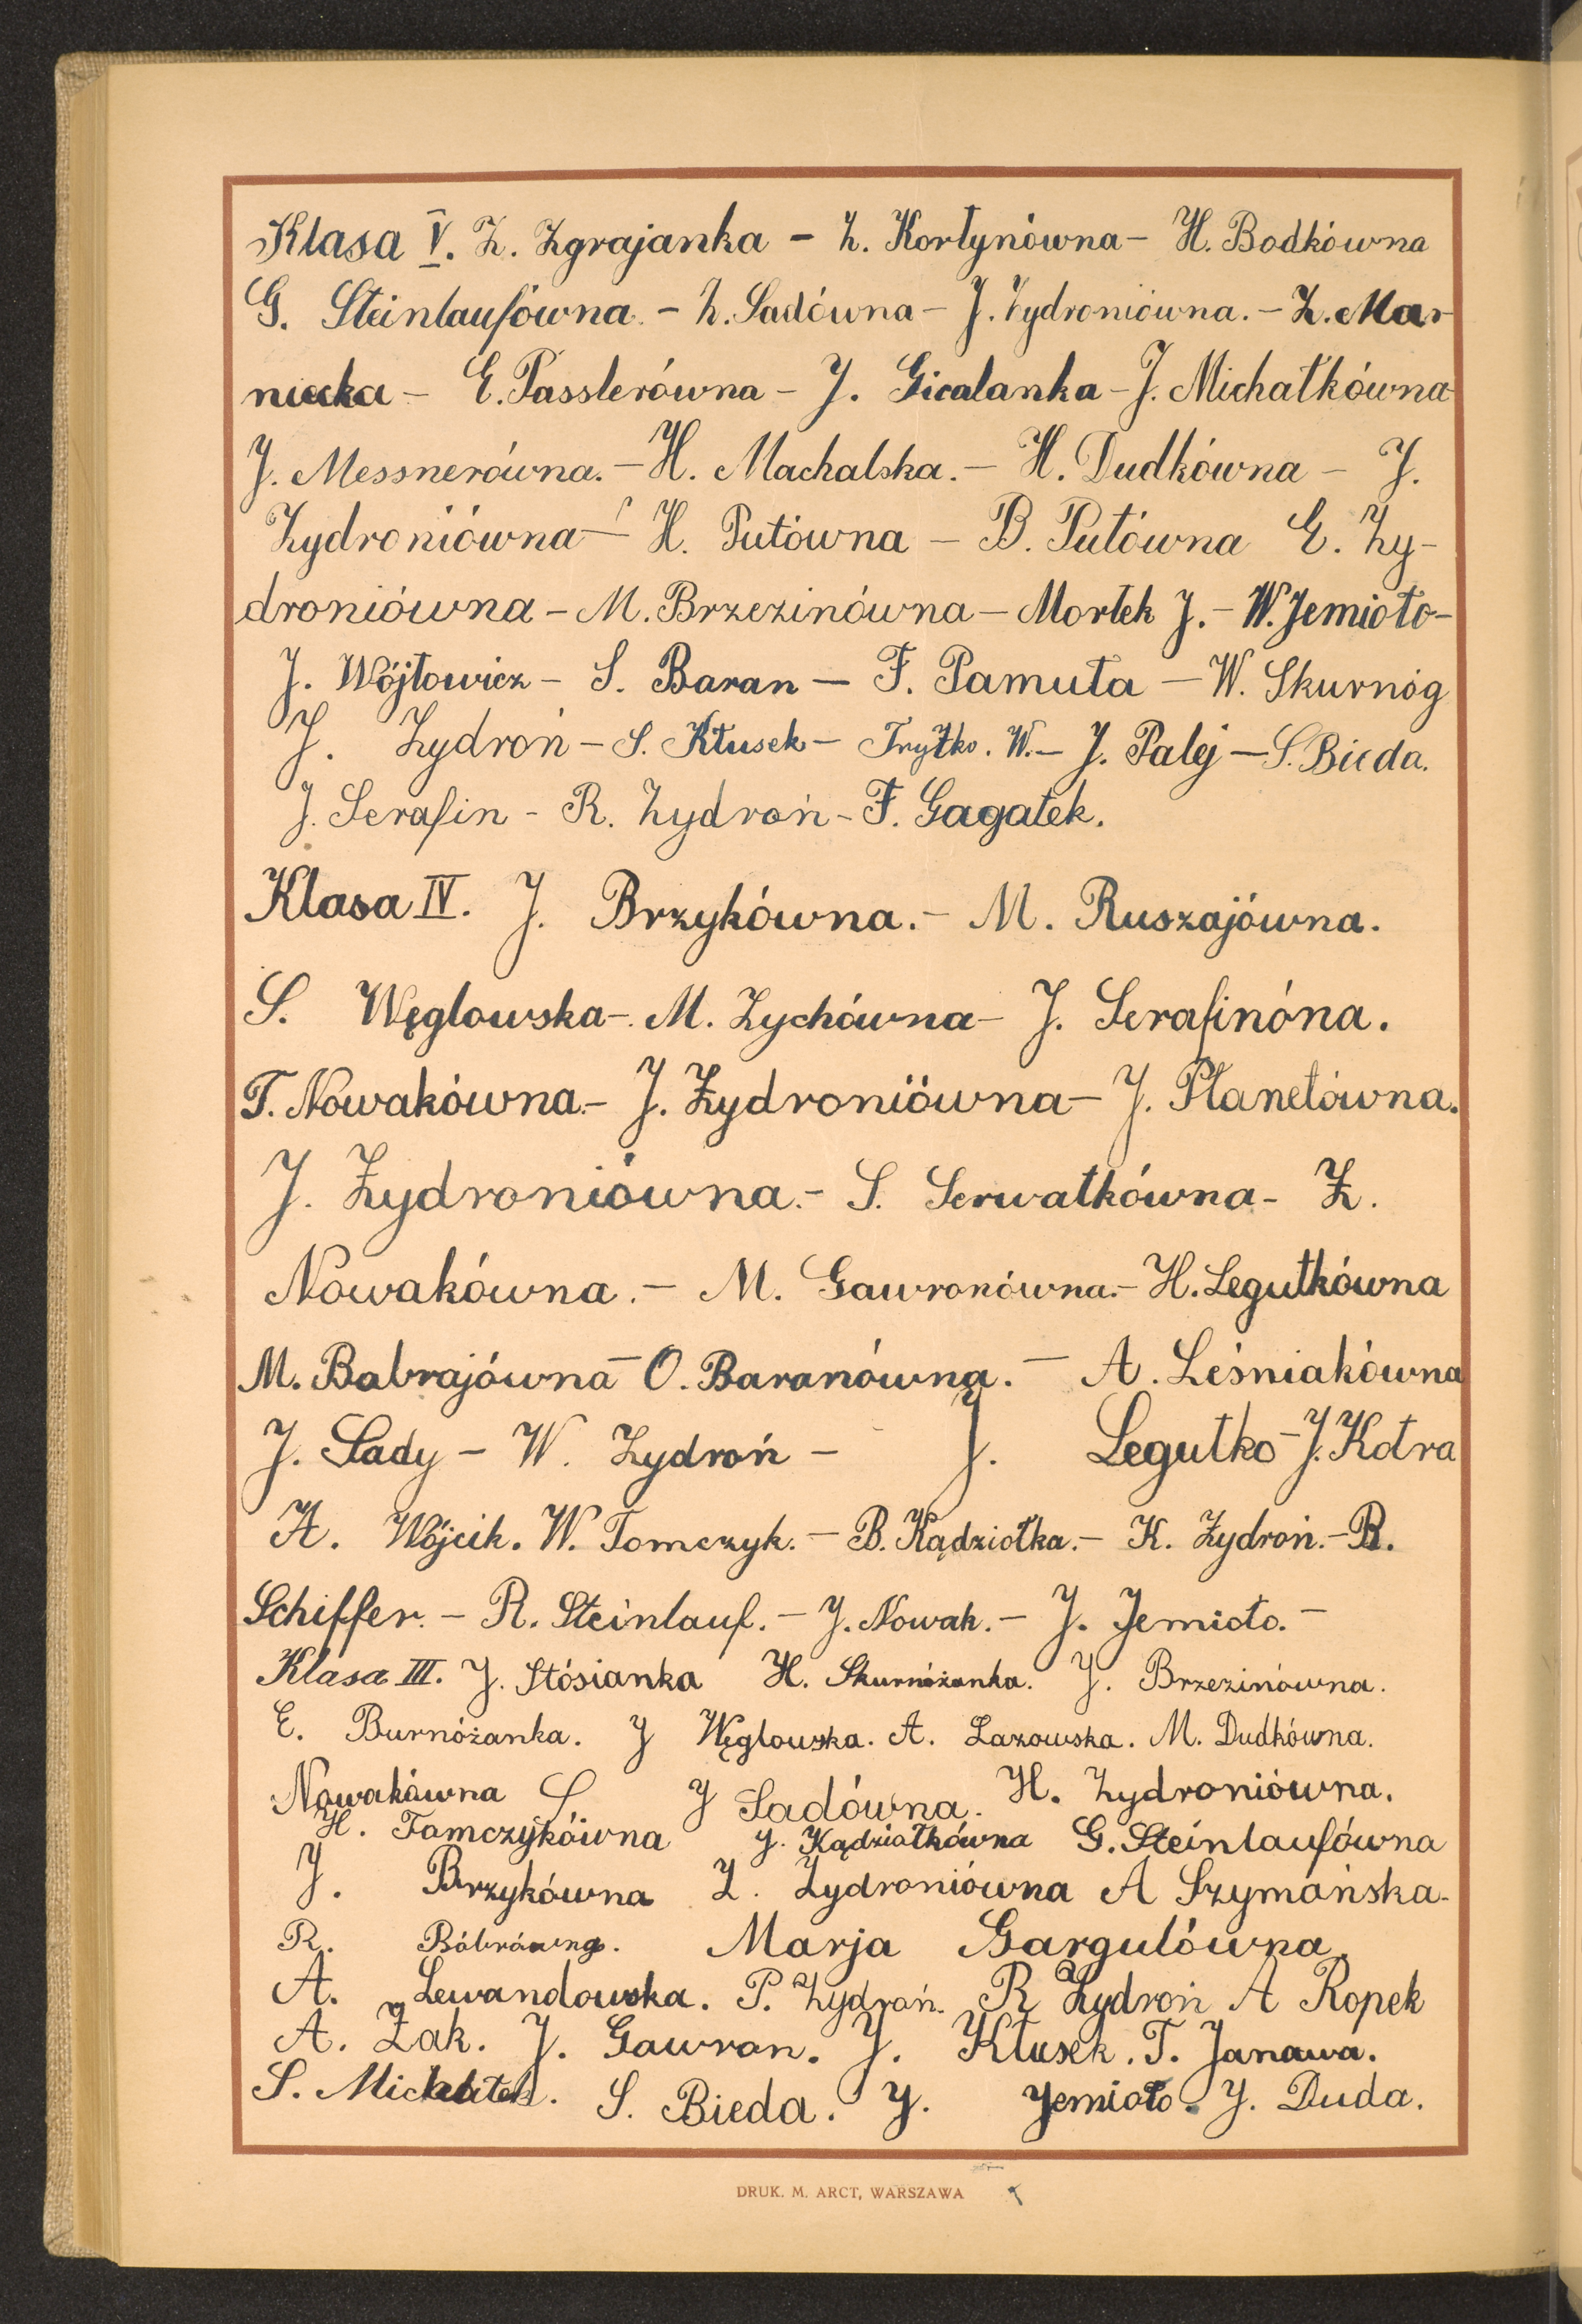 Klasa V. Z. Zgrajanka - Z. Kortynówna - H. Bodkówna
G. Steinlaufówna. - Z. Sadówna - J. Zydroniówna. - Z. Mar-
niecka - E. Passlerówna - J. Gicalanka - J. Michałkówna
J. Messnerówna. - H. Machalska. - H. Dudkówna - J.
Zydroniówna - H. Putówna - B. Putówna E. Zy-
droniówna - M. Brzezinówna - Mortek J. - W. Jemioło -
J. Wójtowicz - S. Baran - F. Pamuła - W. Skurnóg
J. Zydroń - S. Kłusek - Trytko. W. - J. Palej - S. Bieda.
J. Serafin - R. Zydroń - F. Gagatek.
Klasa IV. J. Brzykówna. - M. Ruszajówna.
S. Węglowska - M. Zychówna - J. Serafinóna.
T. Nowakówna - J. Zydroniówna - J. Płanetówna.
J. Zydroniówna. - S. Serwatkówna - Z.
Nowakówna. - M. Gawronówna. - H. Legutkówna
M. Babrajówna - O. Baranówna. - A. Leśniakówna
J. Sady - W. Zydroń - J. Legutko - J. Kotra
A. Wójcik. W. Tomczyk. - B. Kądziołka. - K. Zydroń. - B.
Schiffer. - R. Steinlauf. - J. Nowak. - J. Jemioło. -
Klasa III. J. Stósianka H. Skurnóżanka. J. Brzezinówna.
E. Burnóżanka. J Węglowska. A. Lazowska. M. Dudkówna.
Nowakówna S J Sadówna. H. Zydroniówna.
H. Tomczykówna J. Kądziołkówna G. Steinlaufówna
J. Brzykówna Z. Zydroniówna A Szymańska.
R. Bóbrówna. Marja Gargulówna.
A. Lewandowska. P. Zydroń. R Zydroń A Ropek
A. Żak. J. Gawron. J. Kłusek. T. Janawa.
S. Michałek. S. Bieda. J. Jemioło. J. Duda.
DRUK. M. ARCT, WARSZAWA